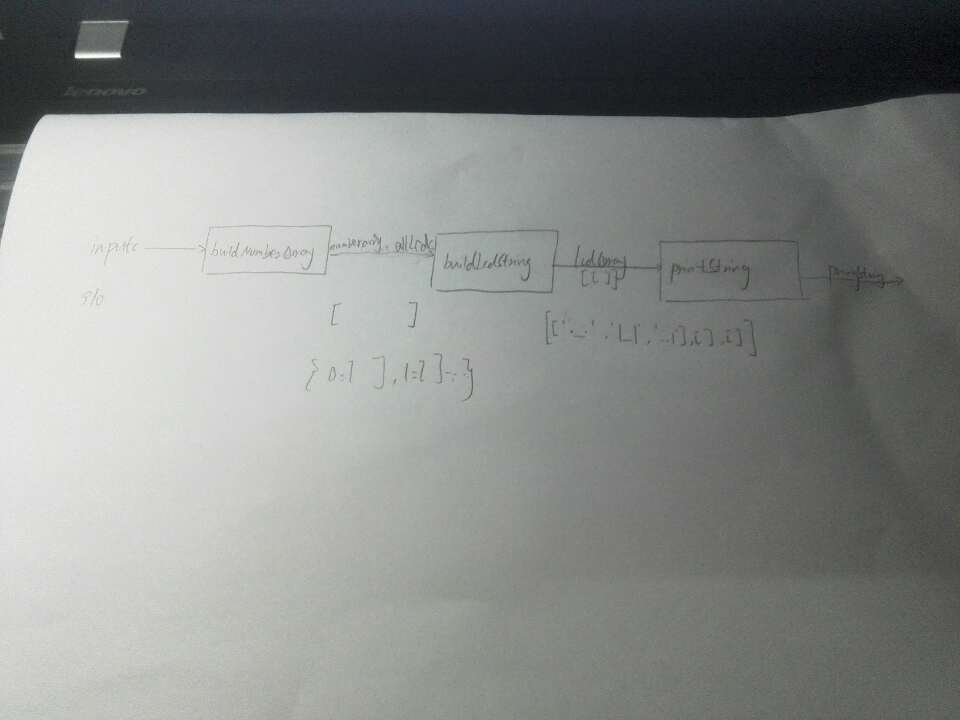 lenovo
inputs buildNumberArray numberarray, allLeds buildLedString LedArray printString
[[ ]]
910
[ ]
[['._.', '|_|', '..|'],[ ],[ ]]
{ 0:[ ], 1:[ ] ... }